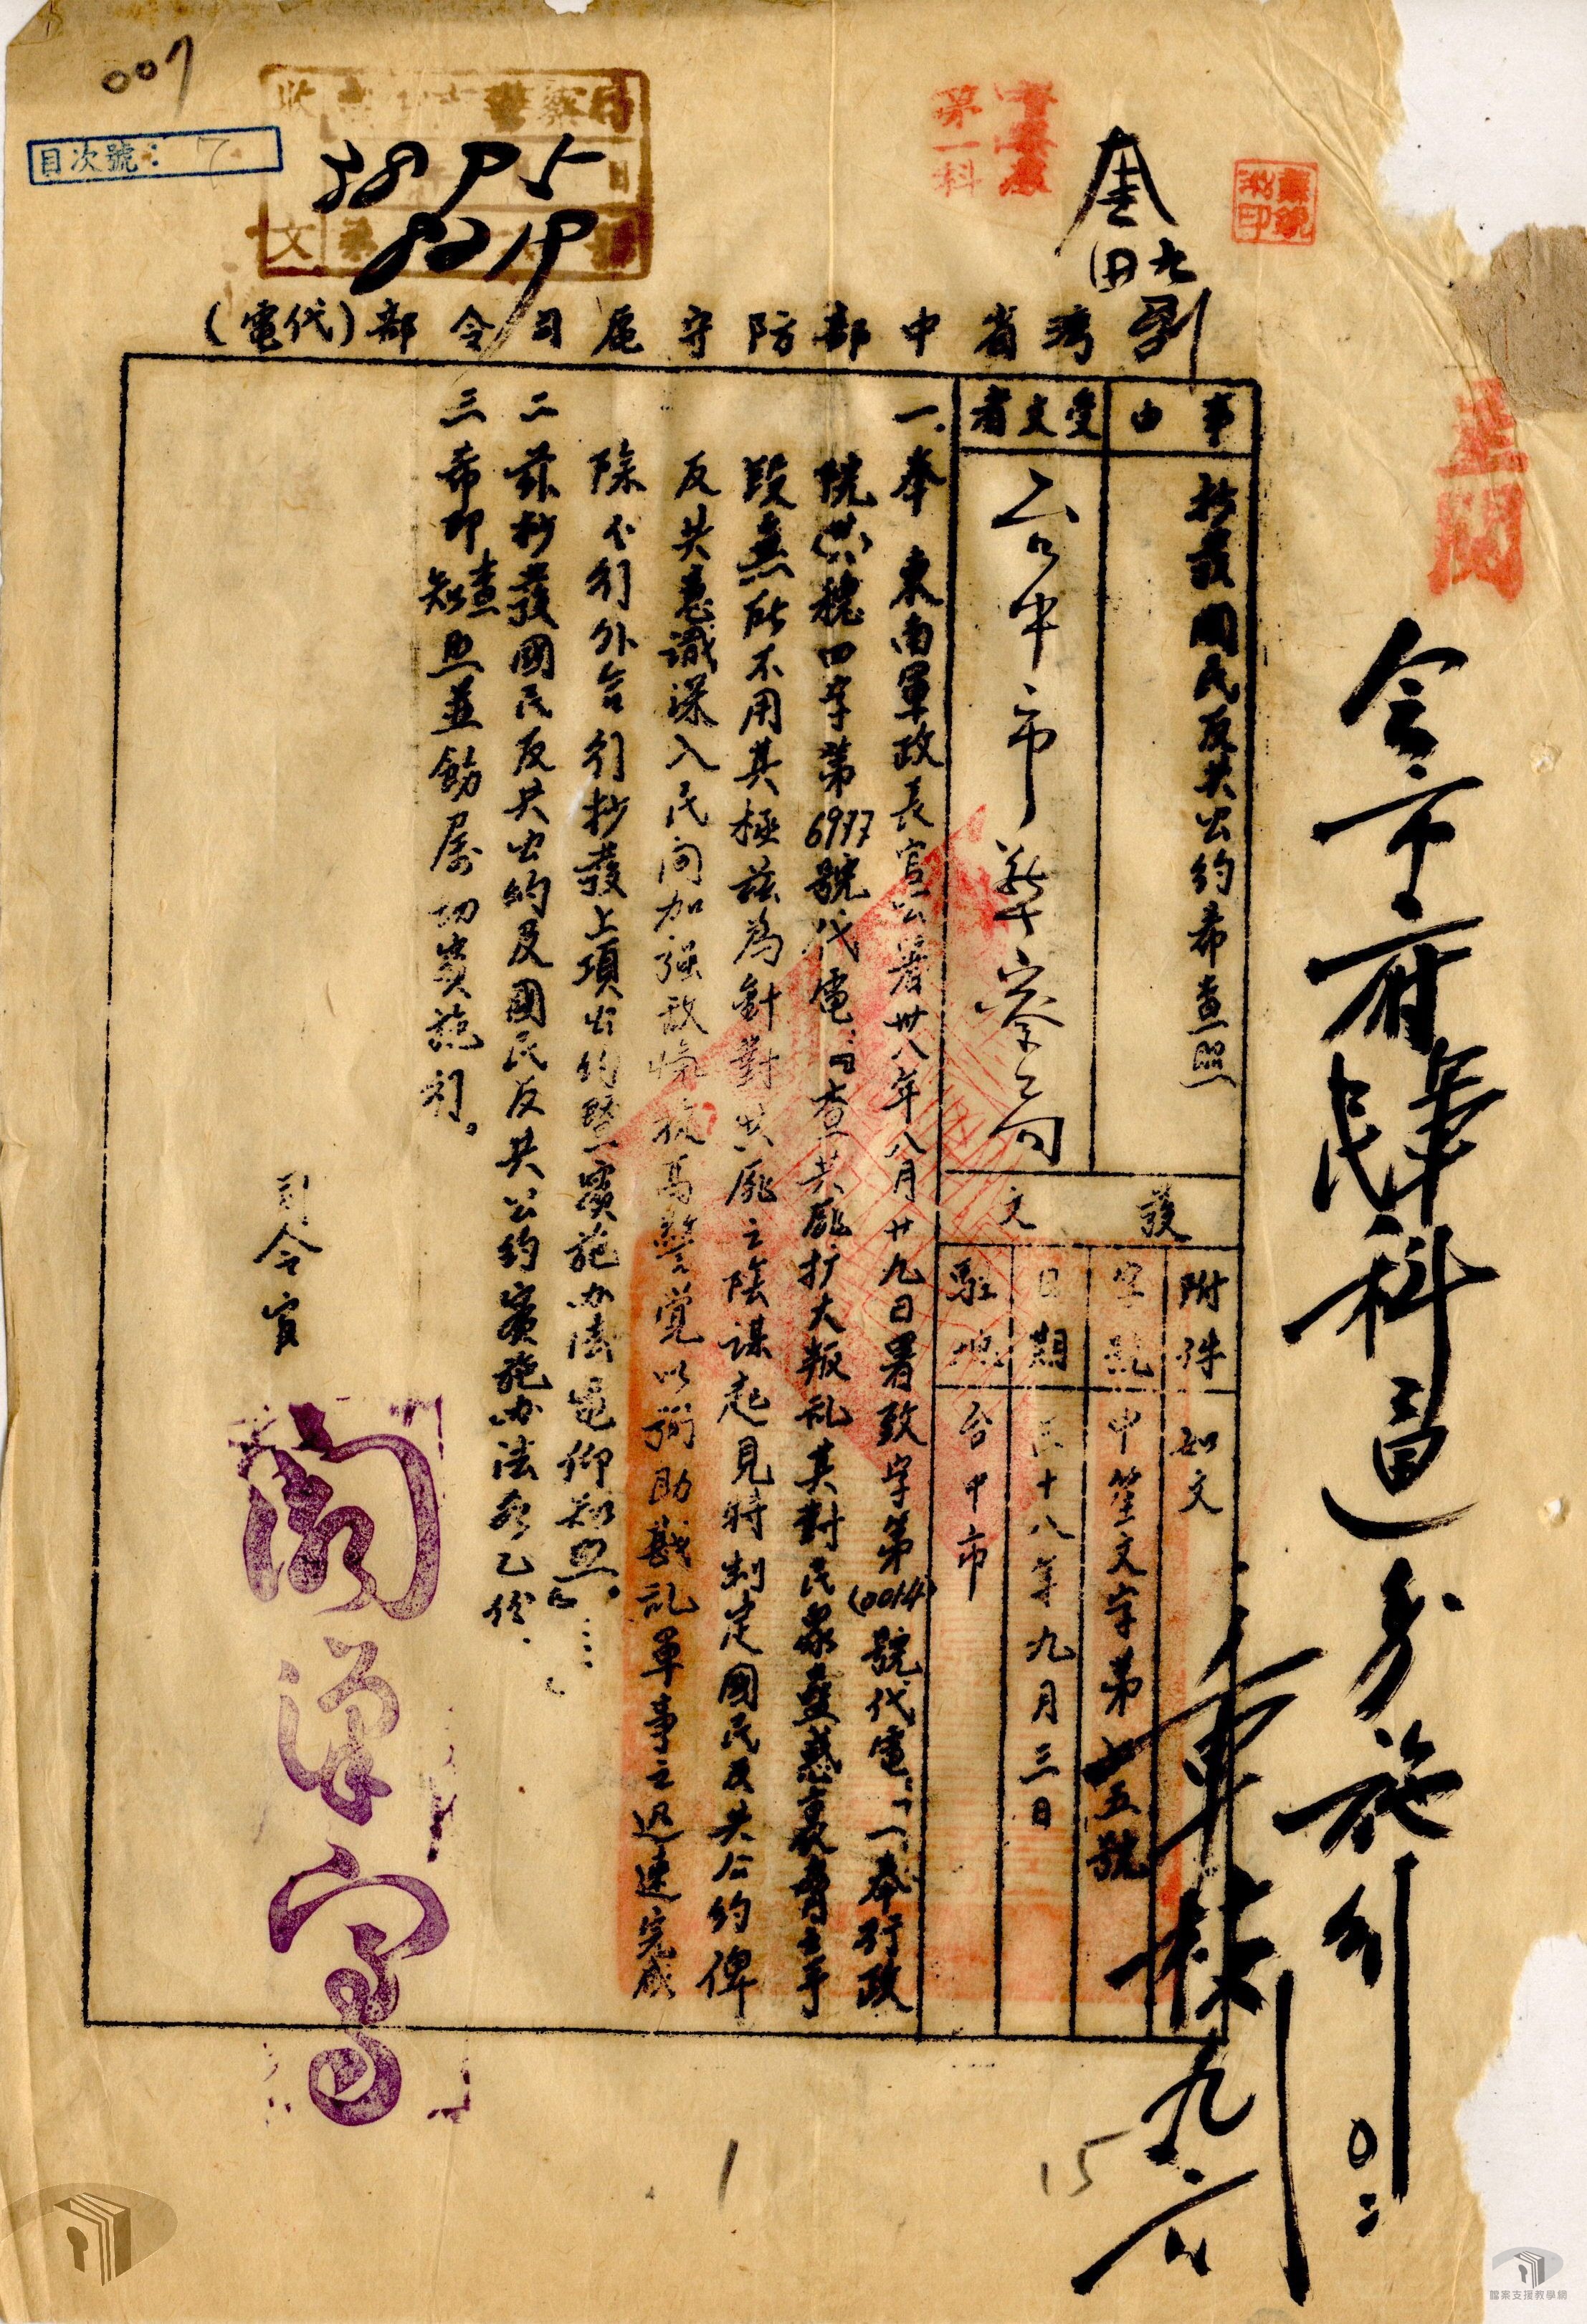 007
目次號：7
38 9 5
8219
第一科
台灣省中部防守區司令部（代電）
事由
抄發國民反共公約希查照
受文者
台中市警察局
發文
附件
如文
字號
中笙文字第 五號
日期
卅八年九月三日
駐地
台中市
一、奉 東南軍政長官公署卅八年八月廿九日署致字第（0014）號代電：「一、奉行政
院（卅八）穗四字第6997號代電：『查共匪扩大叛乱其對民衆蠱惑裹脅之手
段無所不用其極茲為針對共匪之陰謀起見特制定國民反共公約俾
反共意識深入民间加强敌愾提高警覚以弼助戡乱軍事之迅速完成
除分行外合行抄發上項公约暨實施办法電仰知照。』……」
二、茲抄發國民反共公約及國民反共公約實施办法各乙份．
三、希即查照並飭屬切實施行。
知
司令官
闕漢騫
令市府民
肆科遵
施行
九六
1
15
檔案支援教學網